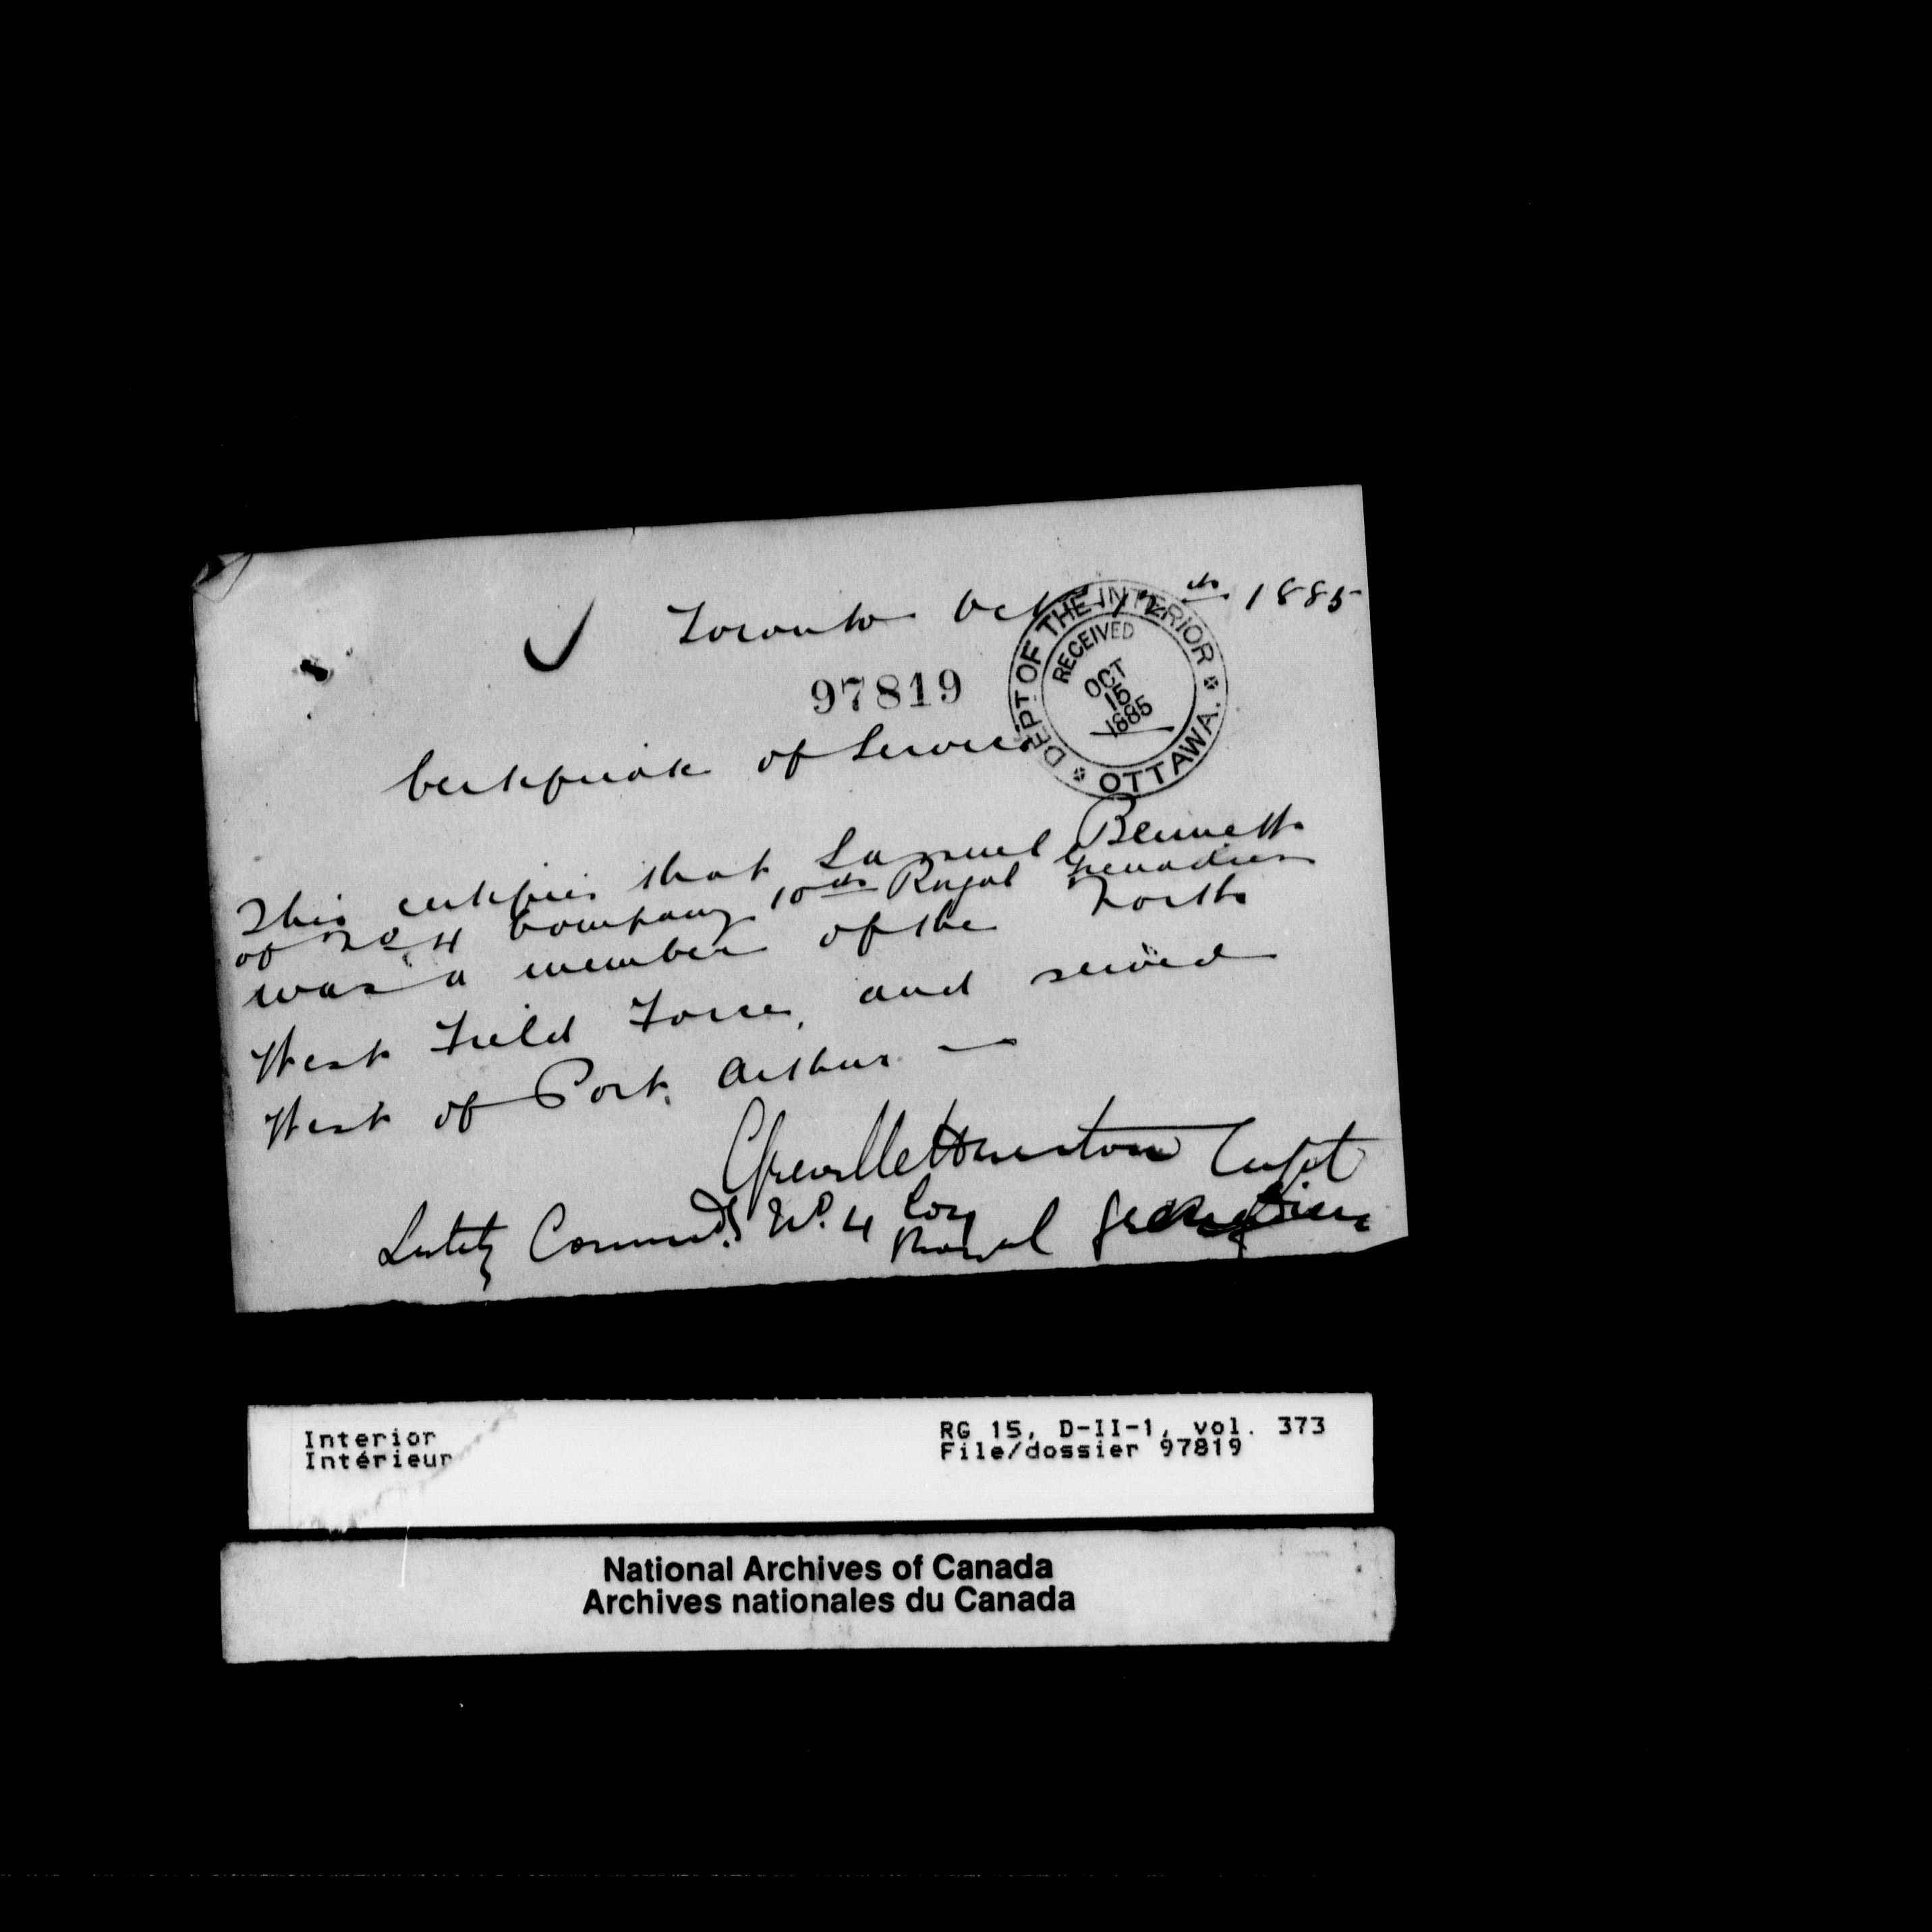 Toronto Oct 12th 1885
97819
DEPT OF THE INTERIOR
RECEIVED
OCT
15
1885
OTTAWA.
Certificate of Service
This certifies that Samuel Bennett
of No 4 Company 10th Royal Grenadiers
was a member of the North
West Field Force, and served
West of Port Arthur —
Greville Harston Capt
Commdg No. 4 Coy
Royal Grenadiers
Interior
Intérieur
RG 15, D-II-1, vol. 373
File/dossier 97819
National Archives of Canada
Archives nationales du Canada